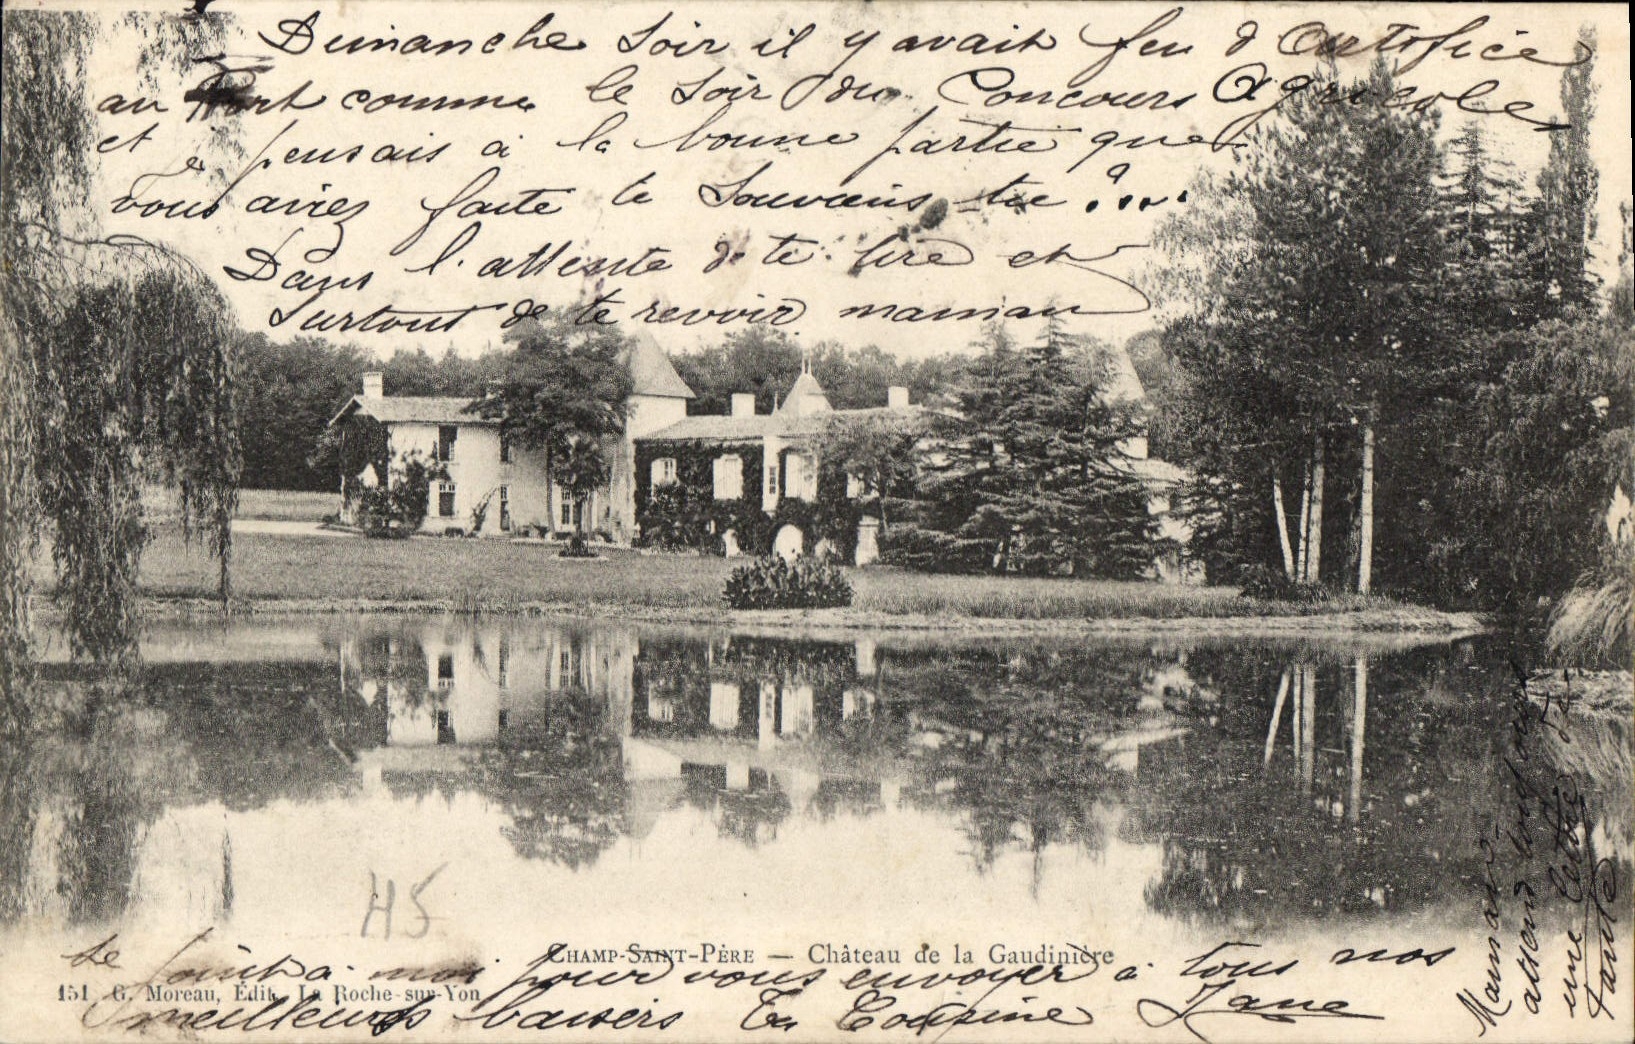 Dimanche soir il y avait feu d'Artifice
au Port comme le soir du Concours Agricole
et je pensais à la bonne partie que
vous aviez faite te souviens tu ?...
Dans l'attente de te lire et
surtout de te revoir maman
se joint à moi pour vous envoyer à tous nos
meilleurs baisers Ta Cousine Jane
CHAMP-SAINT-PÈRE — Château de la Gaudinière
151 G. Moreau, Édit. La Roche-sur-Yon
H5
Maman
attend toujours
une lettre de
tante